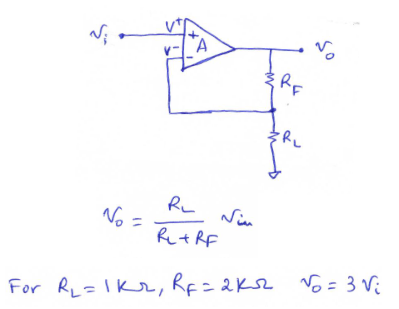 Vi V+ + A Vo
V- -
RF
RL
Vo = RL / (RL + RF) Vin
For RL = 1KΩ, RF = 2KΩ Vo = 3 Vi